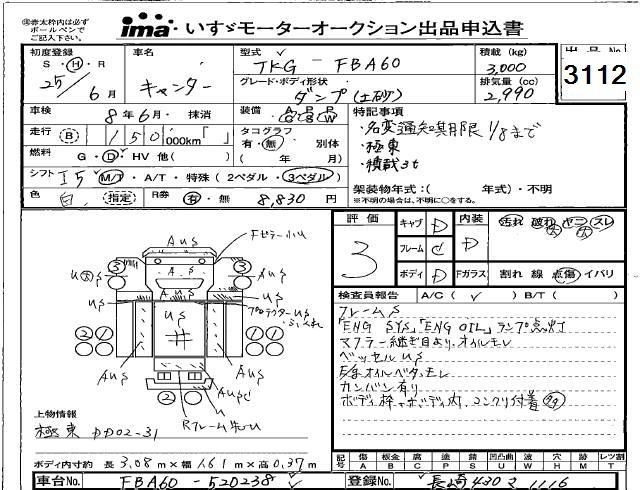 ㊟赤太枠内は必ず
ボールペンで
ご記入下さい。
ima いすゞモーターオークション出品申込書
初度登録
S・H・R
25/6月
車名
キャンター
型式
TKG - FBA60
積載 (kg)
3,000
出品No
3112
グレード・ボディ形状
ダンプ(土砂)
排気量 (cc)
2,990
車検
8年6月・抹消
装備 A P R
C S W
特記事項
・名変通知期限 1/8まで
・極東
・積載3t
走行 B 150,000km「 」
タコグラフ
有・無 別体
( 年 月)
燃料 G・D・HV 他( )
シフト I5 M/T・A/T・特殊 (2ペダル・3ペダル)
架装物年式:( 年式)・不明
※不明の場合は、不明に○をする。
色 白 指定
R券 有・無 8,830 円
評価
3
キャブ D
フレーム C
ボディ D
内装 D
Fガラス
汚れ 破れ ヤニ スレ
割れ 線 点傷 イバリ
検査員報告 A/C ( ✓ ) B/T ( )
フレームS
「ENG SYS」「ENG OIL」ランプ点灯
マフラー継ぎ目より、オイルモレ
ベッセルUS
カンバン有り
ボディ枠、ボディ内、コンクリ付着
AUS
US
3
3
2 1
1 1
2
上物情報
極東 DD02-31
ボディ内寸約 長 3.08 m×幅 1.61 m×高 0.37 m
記号 傷 板金 腐 塗 錆 凹凸曲 割 穴 歩 レツ割
A B C P S U W H M T
車台No. FBA60-520238
登録No. 長崎 430 さ 1116